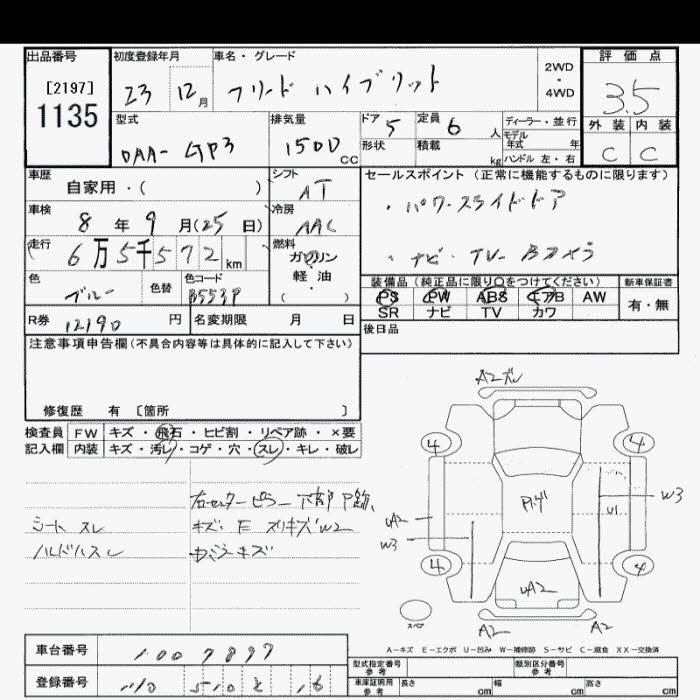 出品番号 初度登録年月 車名・グレード 2WD・4WD 評価点
[2197]
1135
23 12月 フリード ハイブリット 3.5
型式 排気量 ドア 定員 ディーラー・並行 外装 内装
DAA-GP3 1500 CC 5 6 人 モデル年式 年 C C
形状 積載 kg ハンドル 左・右
車歴 シフト セールスポイント (正常に機能するものに限ります)
自家用・( ) AT ・パワースライドドア
車検 冷房
8 年 9 月(25 日) AAC
走行 燃料 ・ナビ・TV-Bカメラ
6万5千572 km ガソリン
軽・油
( )
色 色替 色コード 装備品 (純正品に限り○をつけてください) 新車保証書
ブルー B553P PS PW ABS エアB AW 有・無
SR ナビ TV カワ
R券 12190 円 名変期限 月 日 後日品
注意事項申告欄(不具合内容等は具体的に記入して下さい)
修復歴 有 〔箇所 〕
検査員 FW キズ・飛石・ヒビ割・リペア跡・×要
記入欄 内装 キズ・汚レ・コゲ・穴・スレ・キレ・破レ
右センターピラー下部 P跡、
シート スレ キズ・E スリキズW2
ハンドルスレ
A2
4 4
W3
U1
UA2
W3
4 4
UA2
スペア
A2 A2
A-キズ E-エクボ U-凹み W-補修跡 S-サビ C-腐食 XX-交換済
車台番号 1007897
型式指定番号 参考 類別区分番号 参考
登録番号
車庫証明用 参考 長さ cm 幅 cm 高さ cm